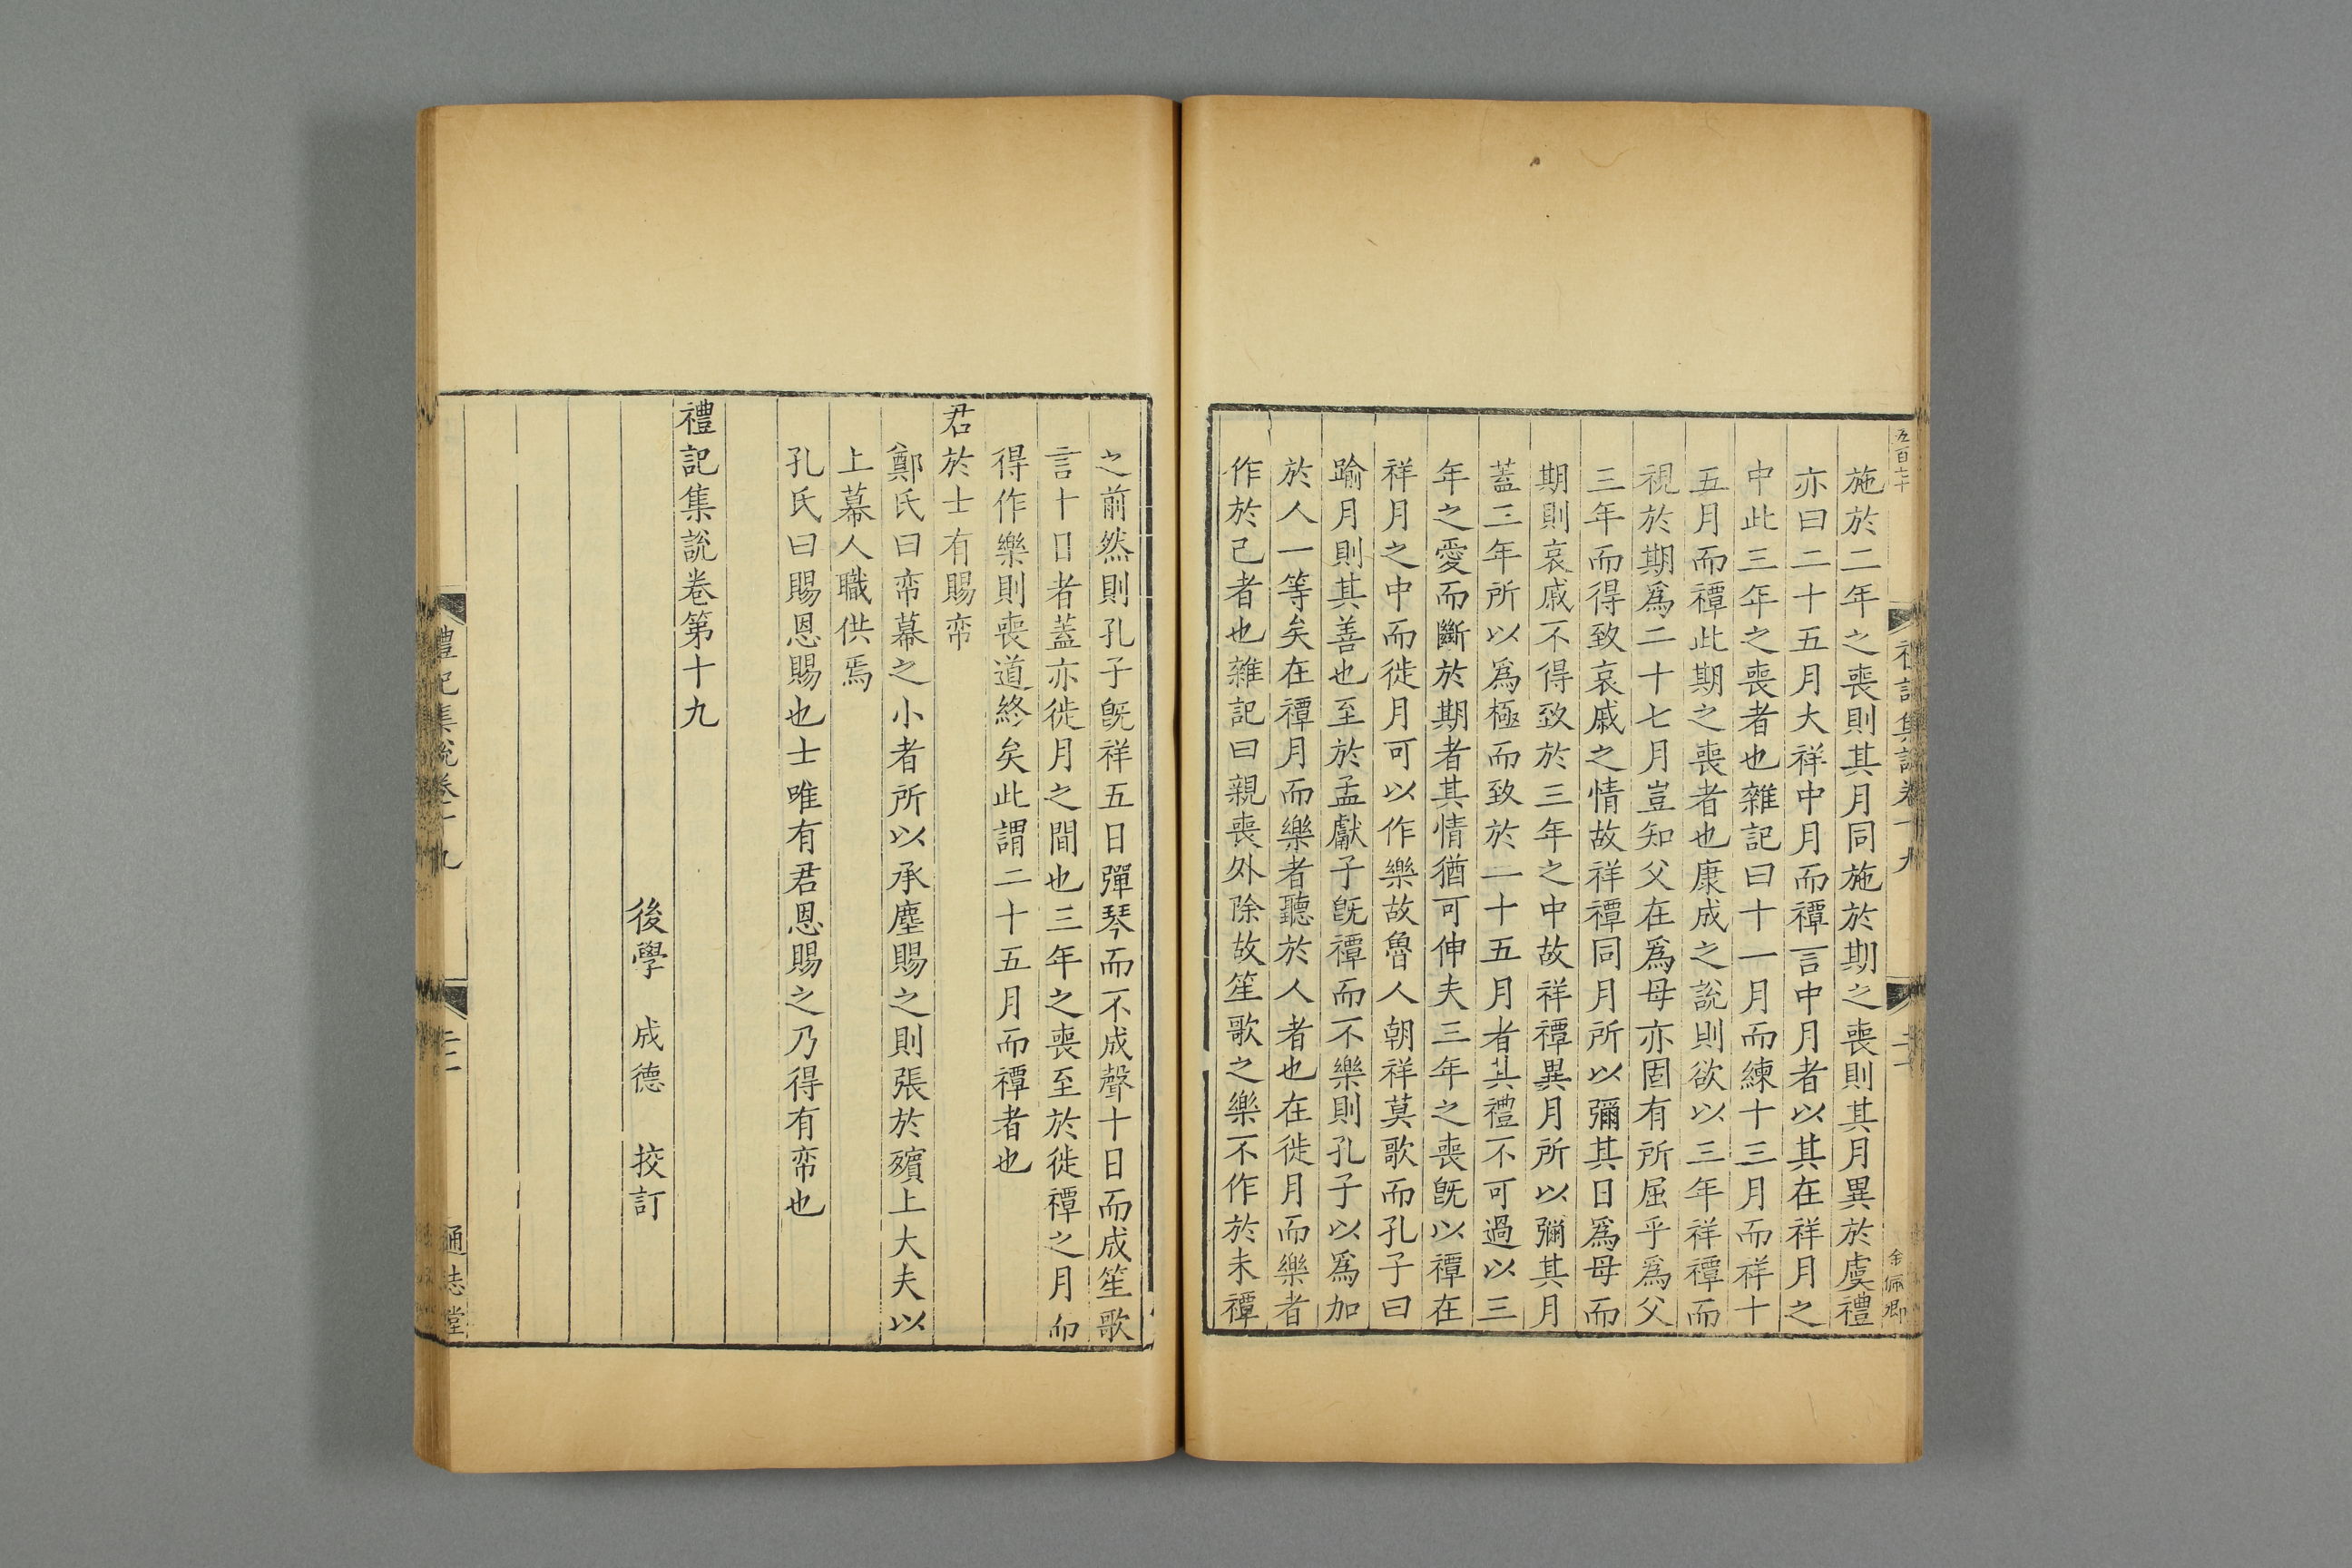 施於二年之喪則其月同施於期之喪則其月異於虞禮
亦曰二十五月大祥中月而禫言中月者以其在祥月之
中此三年之喪者也雜記曰十一月而練十三月而祥十
五月而禫此期之喪者也康成之說則欲以三年祥禫而
視於期爲二十七月豈知父在爲母亦固有所屈乎爲父
三年而得致哀戚之情故祥禫同月所以彌其日爲母而
期則哀戚不得致於三年之中故祥禫異月所以彌其月
蓋三年所以爲極而致於二十五月者其禮不可過以三
年之愛而斷於期者其情猶可伸夫三年之喪旣以禫在
祥月之中而徙月可以作樂故魯人朝祥莫歌而孔子曰
踰月則其善也至於孟獻子旣禫而不樂則孔子以爲加
於人一等矣在禫月而樂者聽於人者也在徙月而樂者
作於己者也雜記曰親喪外除故笙歌之樂不作於未禫
之前然則孔子旣祥五日彈琴而不成聲十日而成笙歌
言十日者蓋亦徙月之間也三年之喪至於徙禫之月而
得作樂則喪道終矣此謂二十五月而禫者也
君於士有賜帟
鄭氏曰帟幕之小者所以承塵賜之則張於殯上大夫以
上幕人職供焉
孔氏曰賜恩賜也士唯有君恩賜之乃得有帟也
禮記集說卷第十九
後學 成德 挍訂
禮記集說卷十九
通志堂